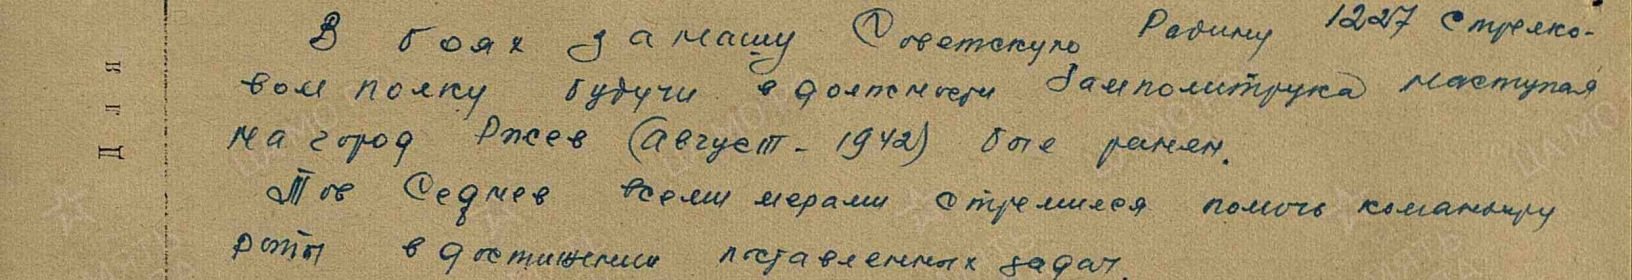 В боях за нашу Советскую Родину 1227 стрелко-
вом полку будучи в должности Замполитрука наступая
на город Ржев (август - 1942) был ранен.
Тов Седнев всеми мерами стремился помочь командиру
роты в достижении поставленных задач.
Для